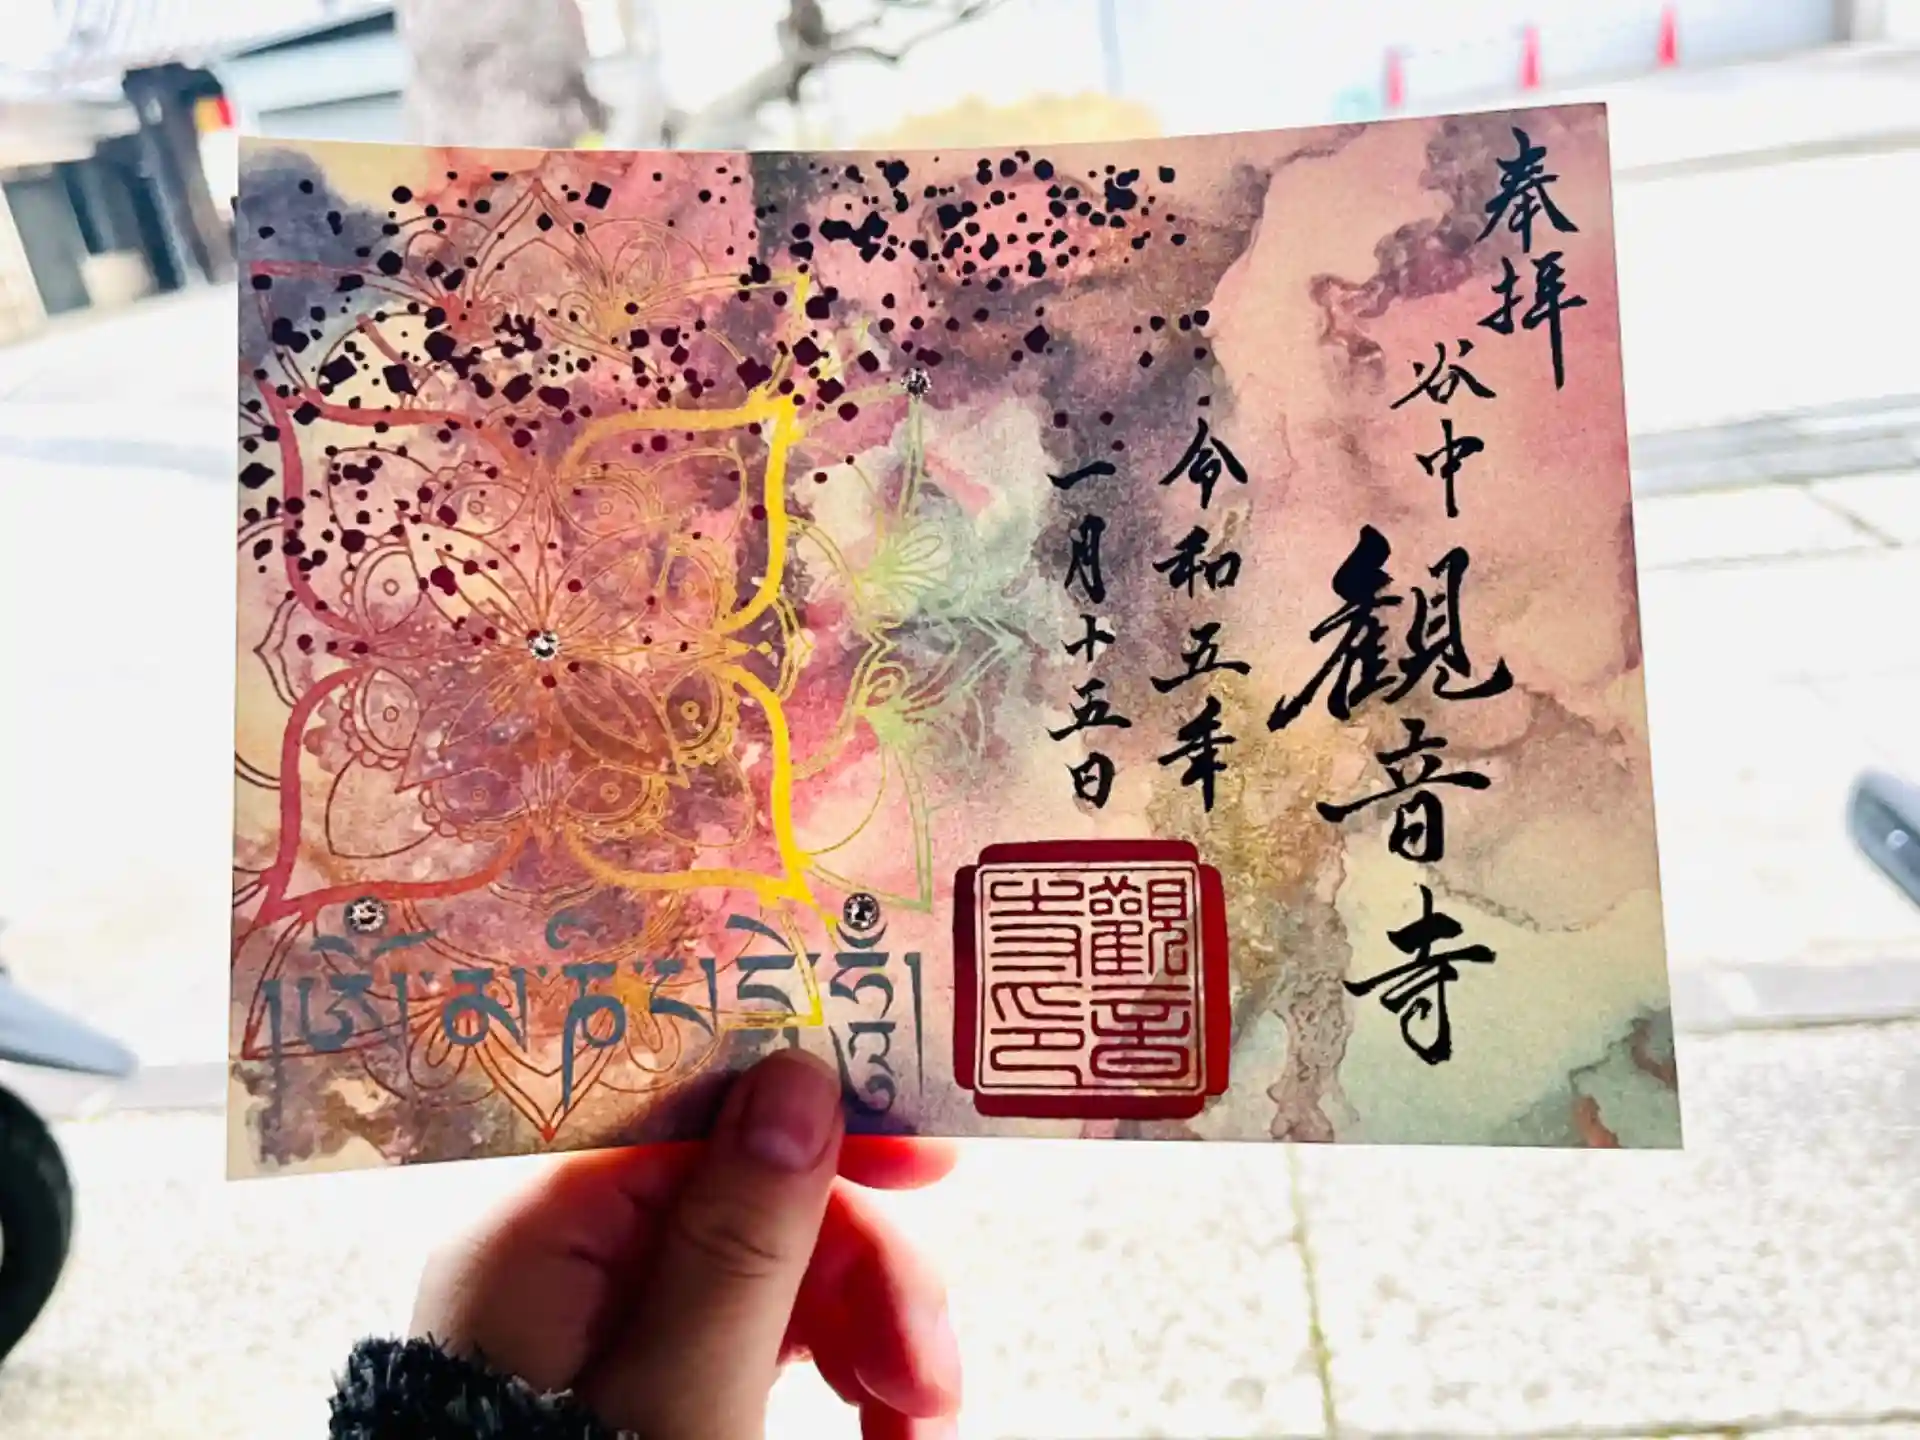 奉拝
谷中
観音寺
令和五年
一月十五日
觀音
寺印
ༀ་མ་ཎི་པ་དྨེ་ཧཱུྃ།